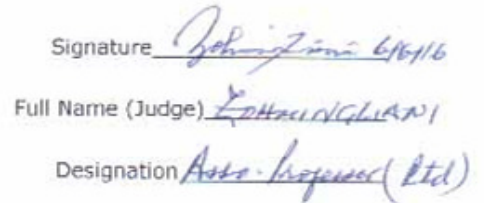 Signature 6/6/16
Full Name (Judge) ZOHMINGLIANI
Designation Asso. Professor (Rtd)